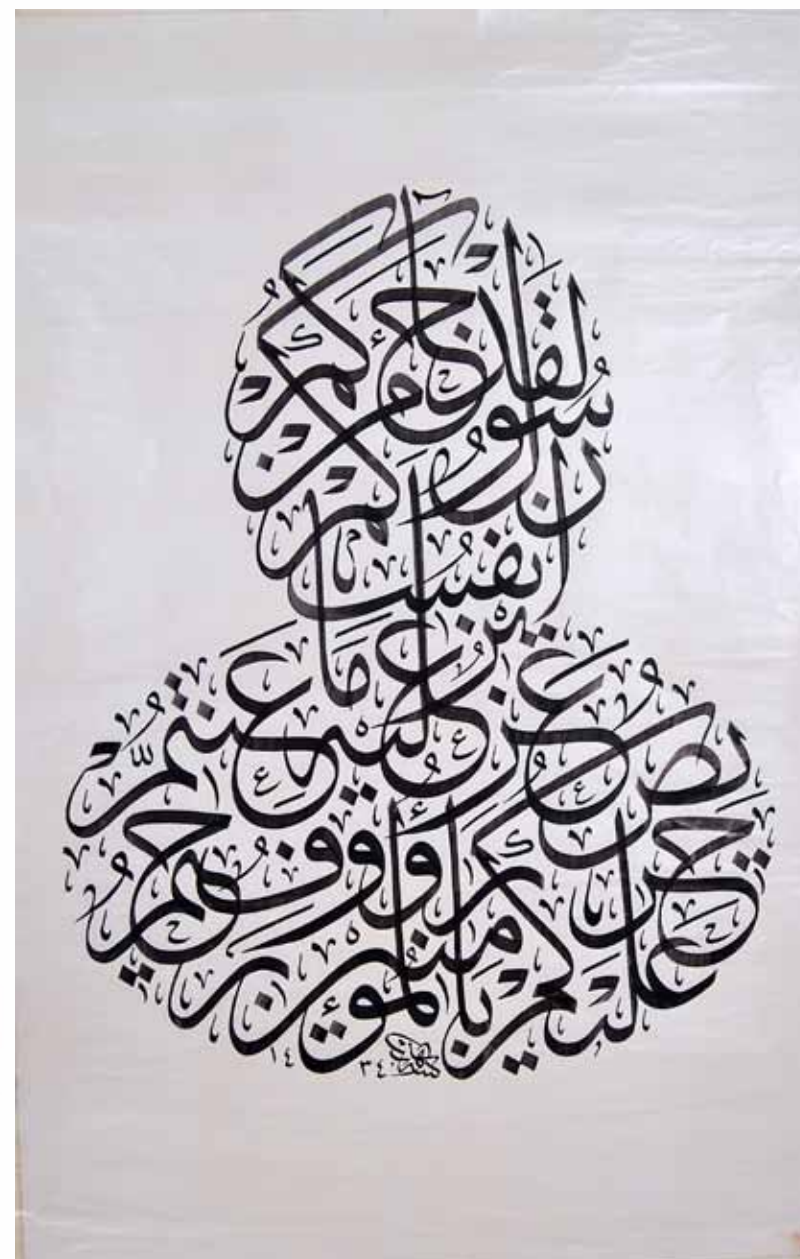 لقد جاءكم
رسول من
أنفسكم
عزيز عليه ما عنتم
حريص عليكم بالمؤمنين رؤوف رحيم
١٤٣٤